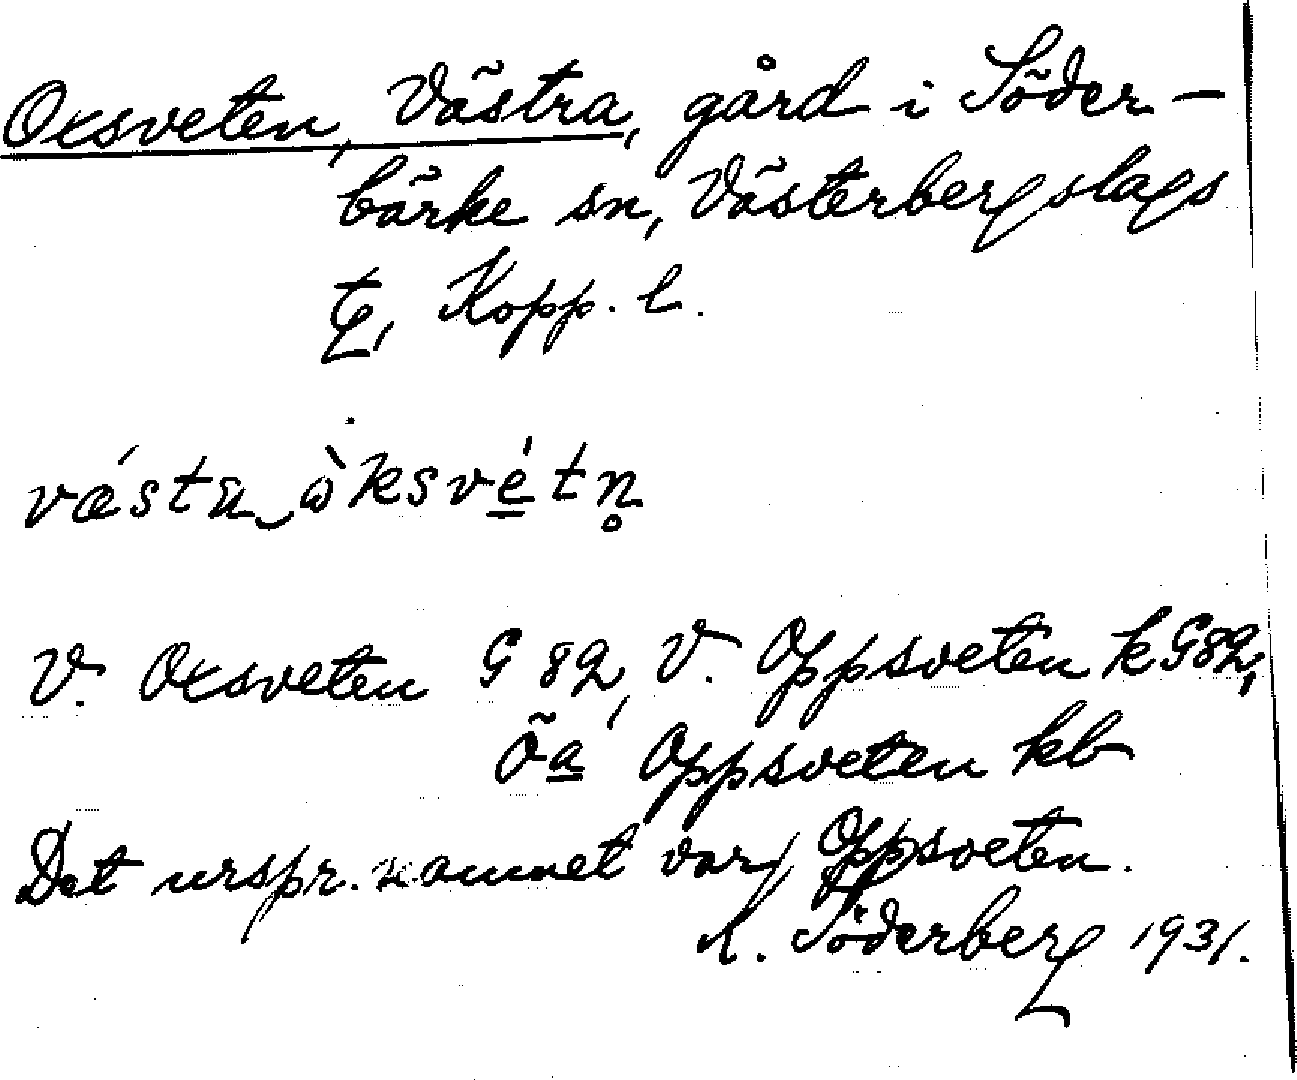 Oxsveten, Västra, gård i Söder-
bärke sn, Västerbergslags
tg, Kopp. l.
vǽsta‿ɷ̀ksvét̠n̥
V. Oxsveten G 82, V. Oppsveten k G82,
Öa Oppsveten kb
Det urspr. namnet var Oppsveten.
L. Söderberg 1931.